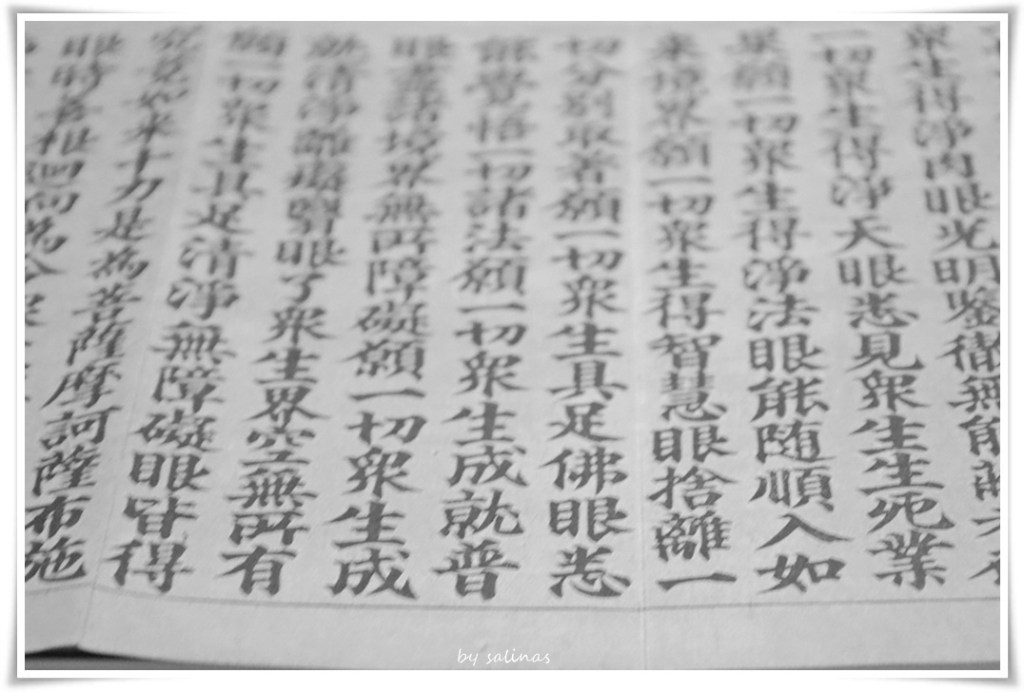 衆生得淨肉眼光明鑒徹無能
一切衆生得淨天眼悉見衆生生死業
果願一切衆生得淨法眼能随順入如
来境界願一切衆生得智慧眼捨離一
切分別取著願一切衆生具足佛眼悉
能覺悟一切諸法願一切衆生成就普
眼盡諸境界無所障礙願一切衆生成
就清淨離癡翳眼了衆生界空無所有
願一切衆生具足清淨無障礙眼皆得
究竟如来十力是為菩薩摩訶薩布施
眼時善根迴向為令衆
by salinas